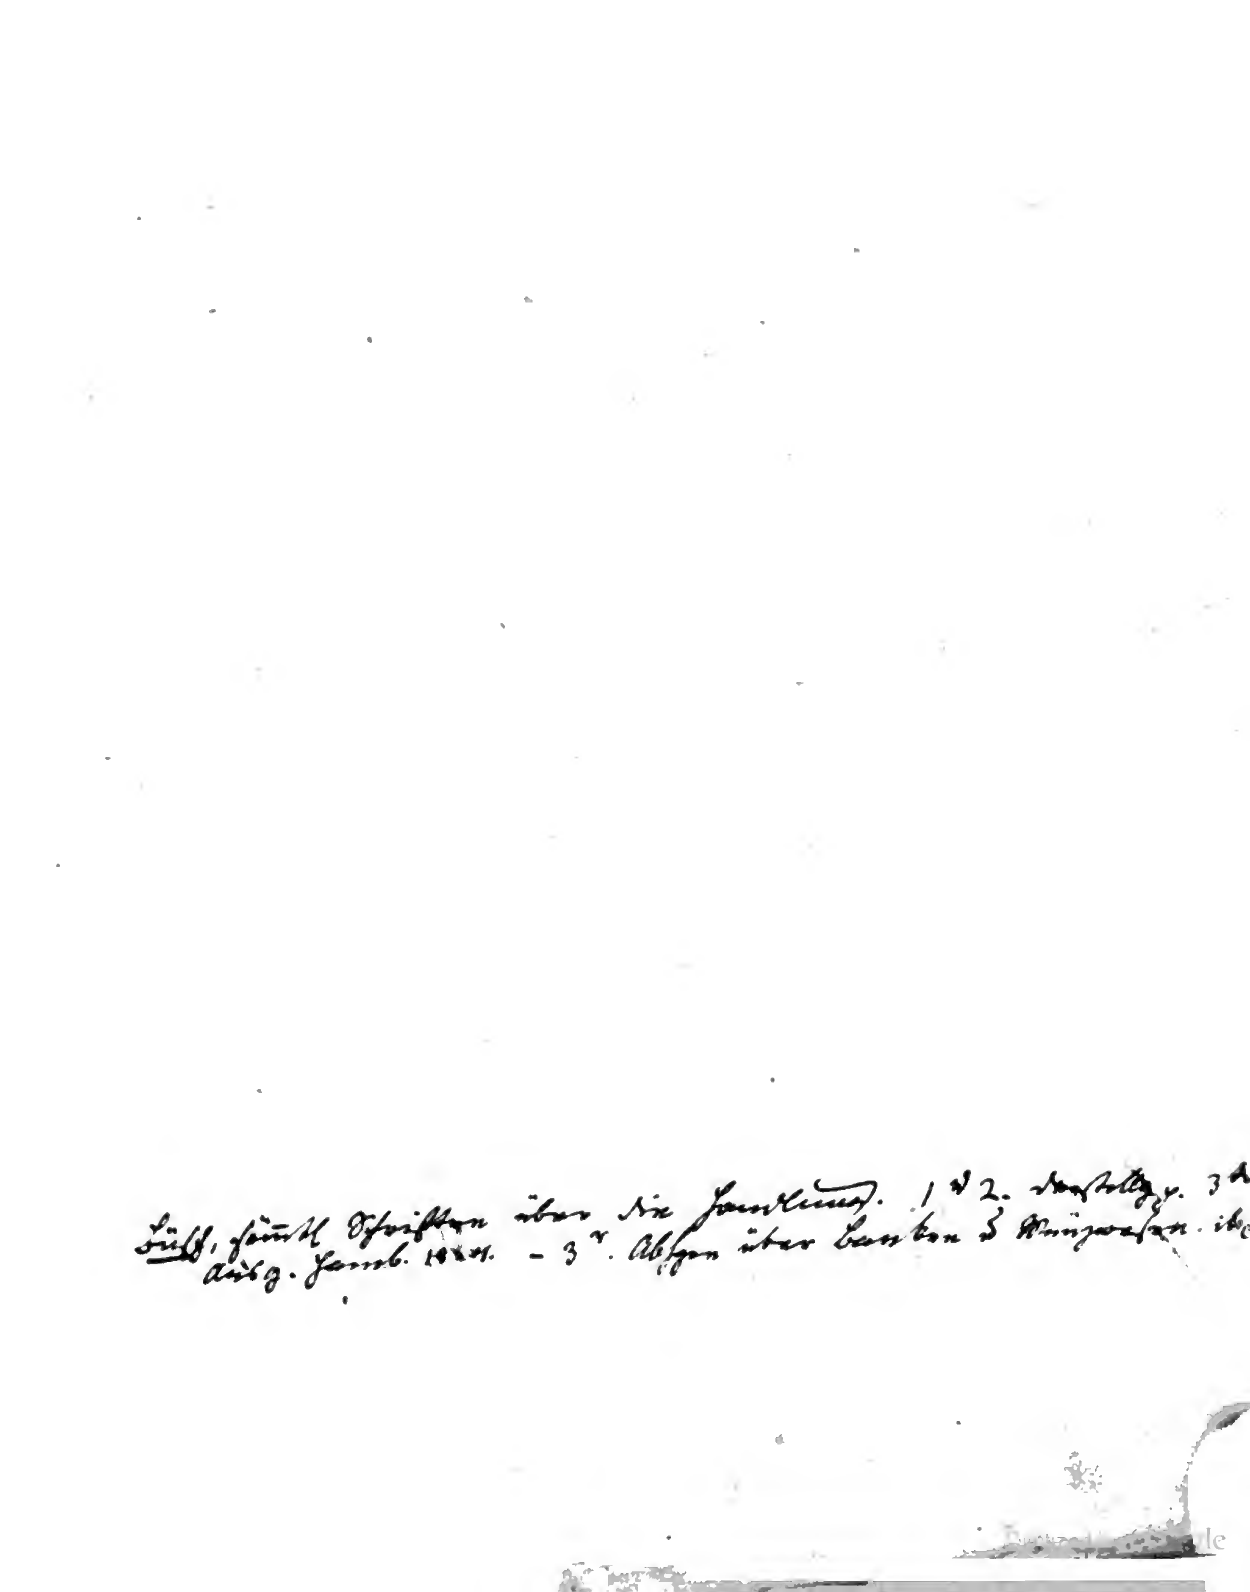 Büsch, sämtl Schriften über die Handlung. 1 u 2. Darstellg p. 3
Ausg. Hamb. – 3 r. Abhgen über Banken u Münzwesen. ib